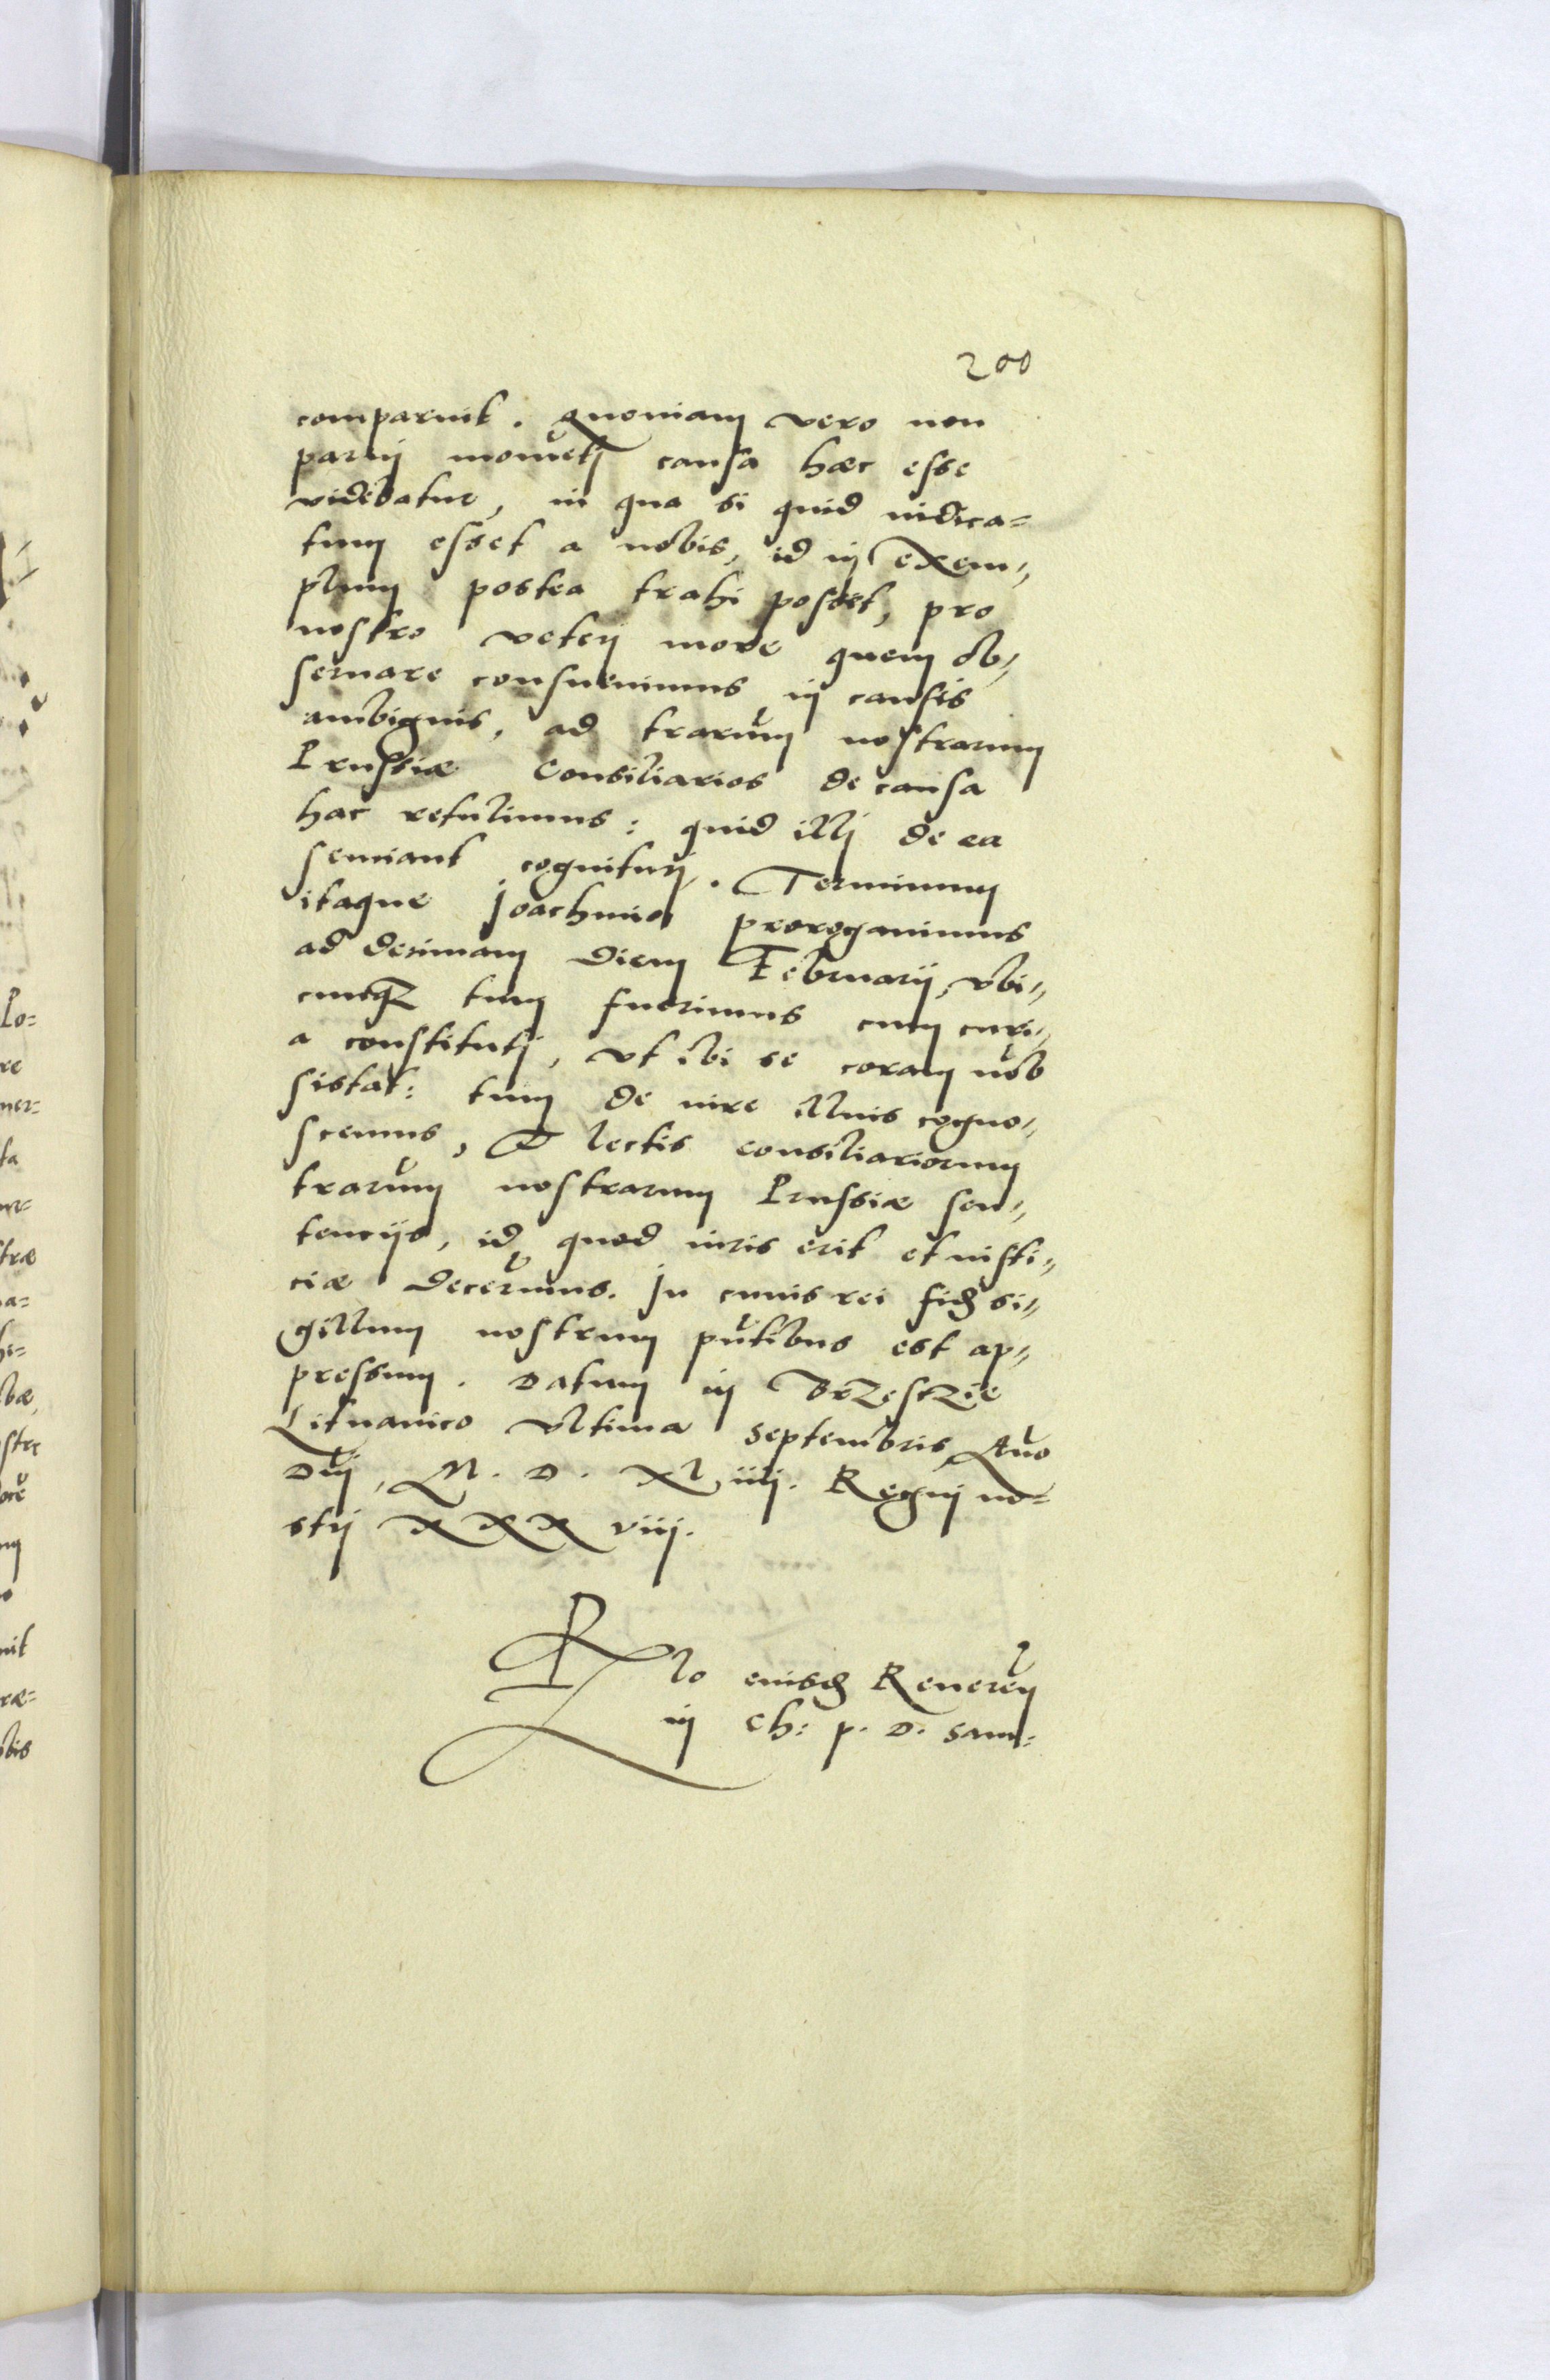 200
comparuit. Quoniam vero non
parvi momēti causa hæc esse
videbatur, in qua si quid iudica=
tum esset a nobis, id in exem=
plum postea trahi posset, pro
nostro veteri more quem ob=
servare consuevimus in causis
ambiguis, ad trarūm nostrarum
Prussiæ Consiliarios de causa
hac retulimus: quid illi de ea
sentiant cognituri. Terminum
itaque Joachimo prorogavimus
ad decimam diem Februarij, ubi=
cunqz tum fuerimus cum curi=
a constituti, ut ibi se coram nōb
sistat: tum de iure illius cogno=
scemus, & lectis consiliariorum
trarūm nostrarum Prussiæ sen=
tencijs, id quod iuris erit et iusti=
ciæ decerūmus. In cuius rei fidē si=
gillum nostrum pūtibus est ap=
pressum. Datum in Brzesczie
Lituanico ultima Septembris Aūo
Dūi, M. D. XL iiij. Regni no=
stri XXX viij.
Rlo eiusdē Reverēn
in Ch: p. D. Sam=
Po=
re
ner=
ta
træ
a=
bæ,
stre
nit
ræ=
bis